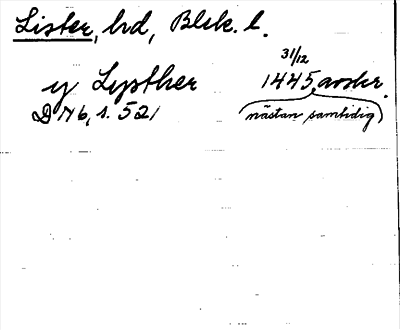 Lister, hd, Blek. l.
31/12
y Lysther 1445 avskr.
D 176, s. 521 (nästan samtidig)